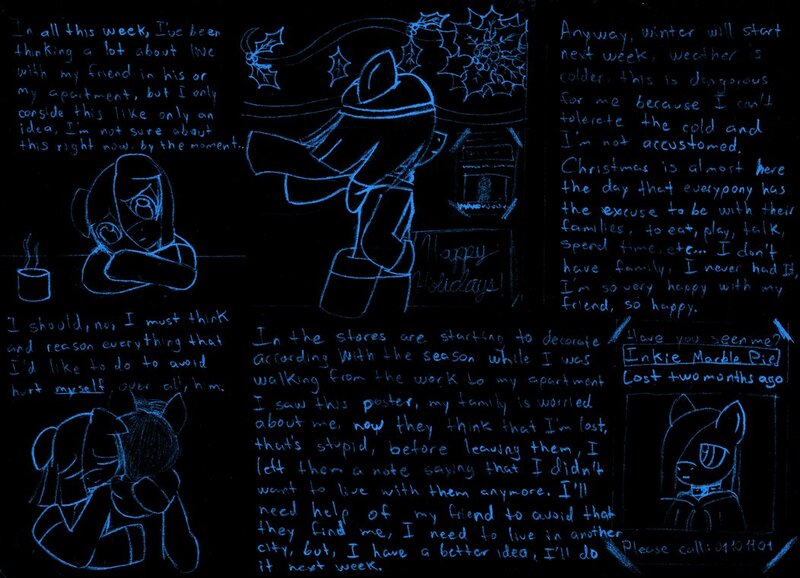 In all this week, I've been
thinking a lot about live
with my friend in his or
my apartment, but I only
conside this like only an
idea, I'm not sure about
this right now. by the moment..
I should, no, I must think
and reason everything that
I'd like to do to avoid
hurt myself, over all him.
Happy
Holidays!
In the stores are starting to decorate
according with the season while I was
walking from the work to my apartment
I saw this poster, my family is worried
about me, now they think that I'm lost,
that's stupid, before leaving them, I
left them a note saying that I didn't
want to live with them anymore. I'll
need help of my friend to avoid that
they find me, I need to live in another
city, but, I have a better idea, I'll do
it next week.
Anyway, winter will start
next week, weather is
colder, this is dangerous
for me because I can't
tolerate the cold and
I'm not accustomed.
Christmas is almost here
the day that everypony has
the excuse to be with their
families, to eat, play, talk,
spend time, etc... I don't
have family, I never had it,
I'm so very happy with my
friend, so happy.
Have you seen me?
Inkie Marble Pie
Lost two months ago
Please call: 01101101